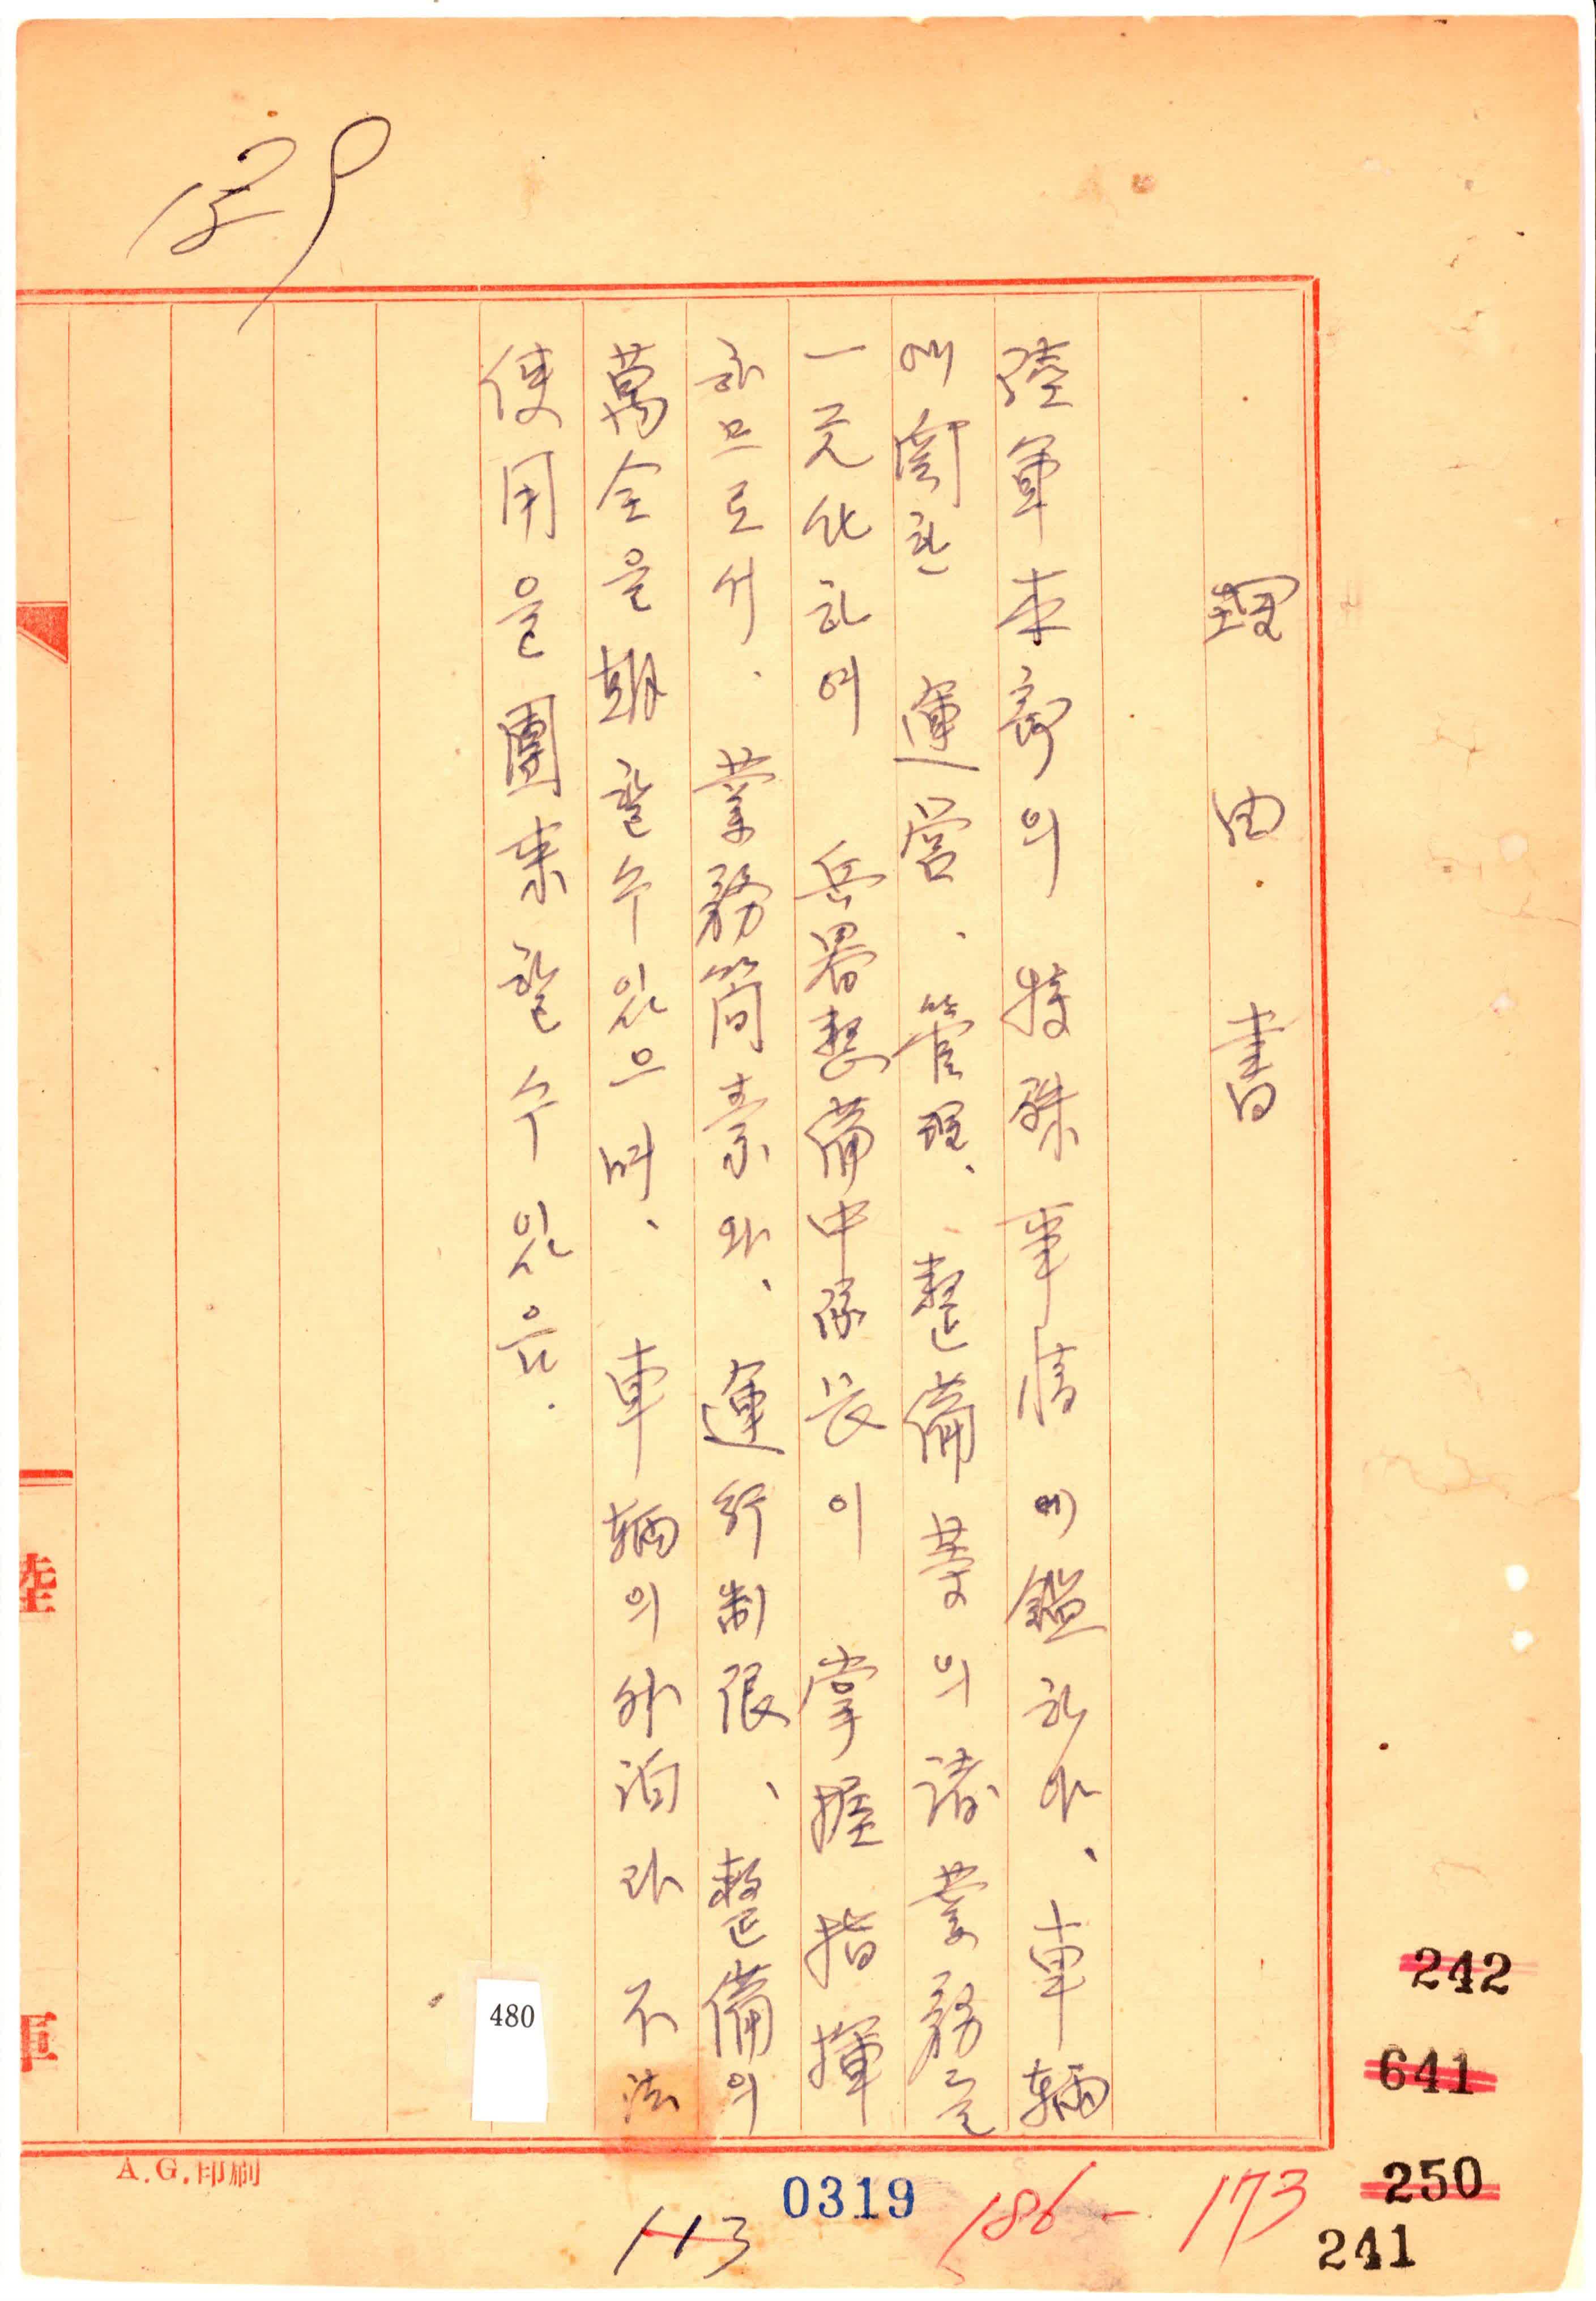 理由書
陸軍本部의 特殊事情에鑑하야、車輛
에關한 運營、管理、整備 業의諸業務를
一元化하여 兵器整備中隊長이 掌握指揮
하므로서、業務簡素와、運行制限、整備의
萬全을期할수있으며、車輛의外泊과不法
使用을團束할수있음.
480
陸
軍
A.G.印刷
113
0319
186-
173
242
641
250
241